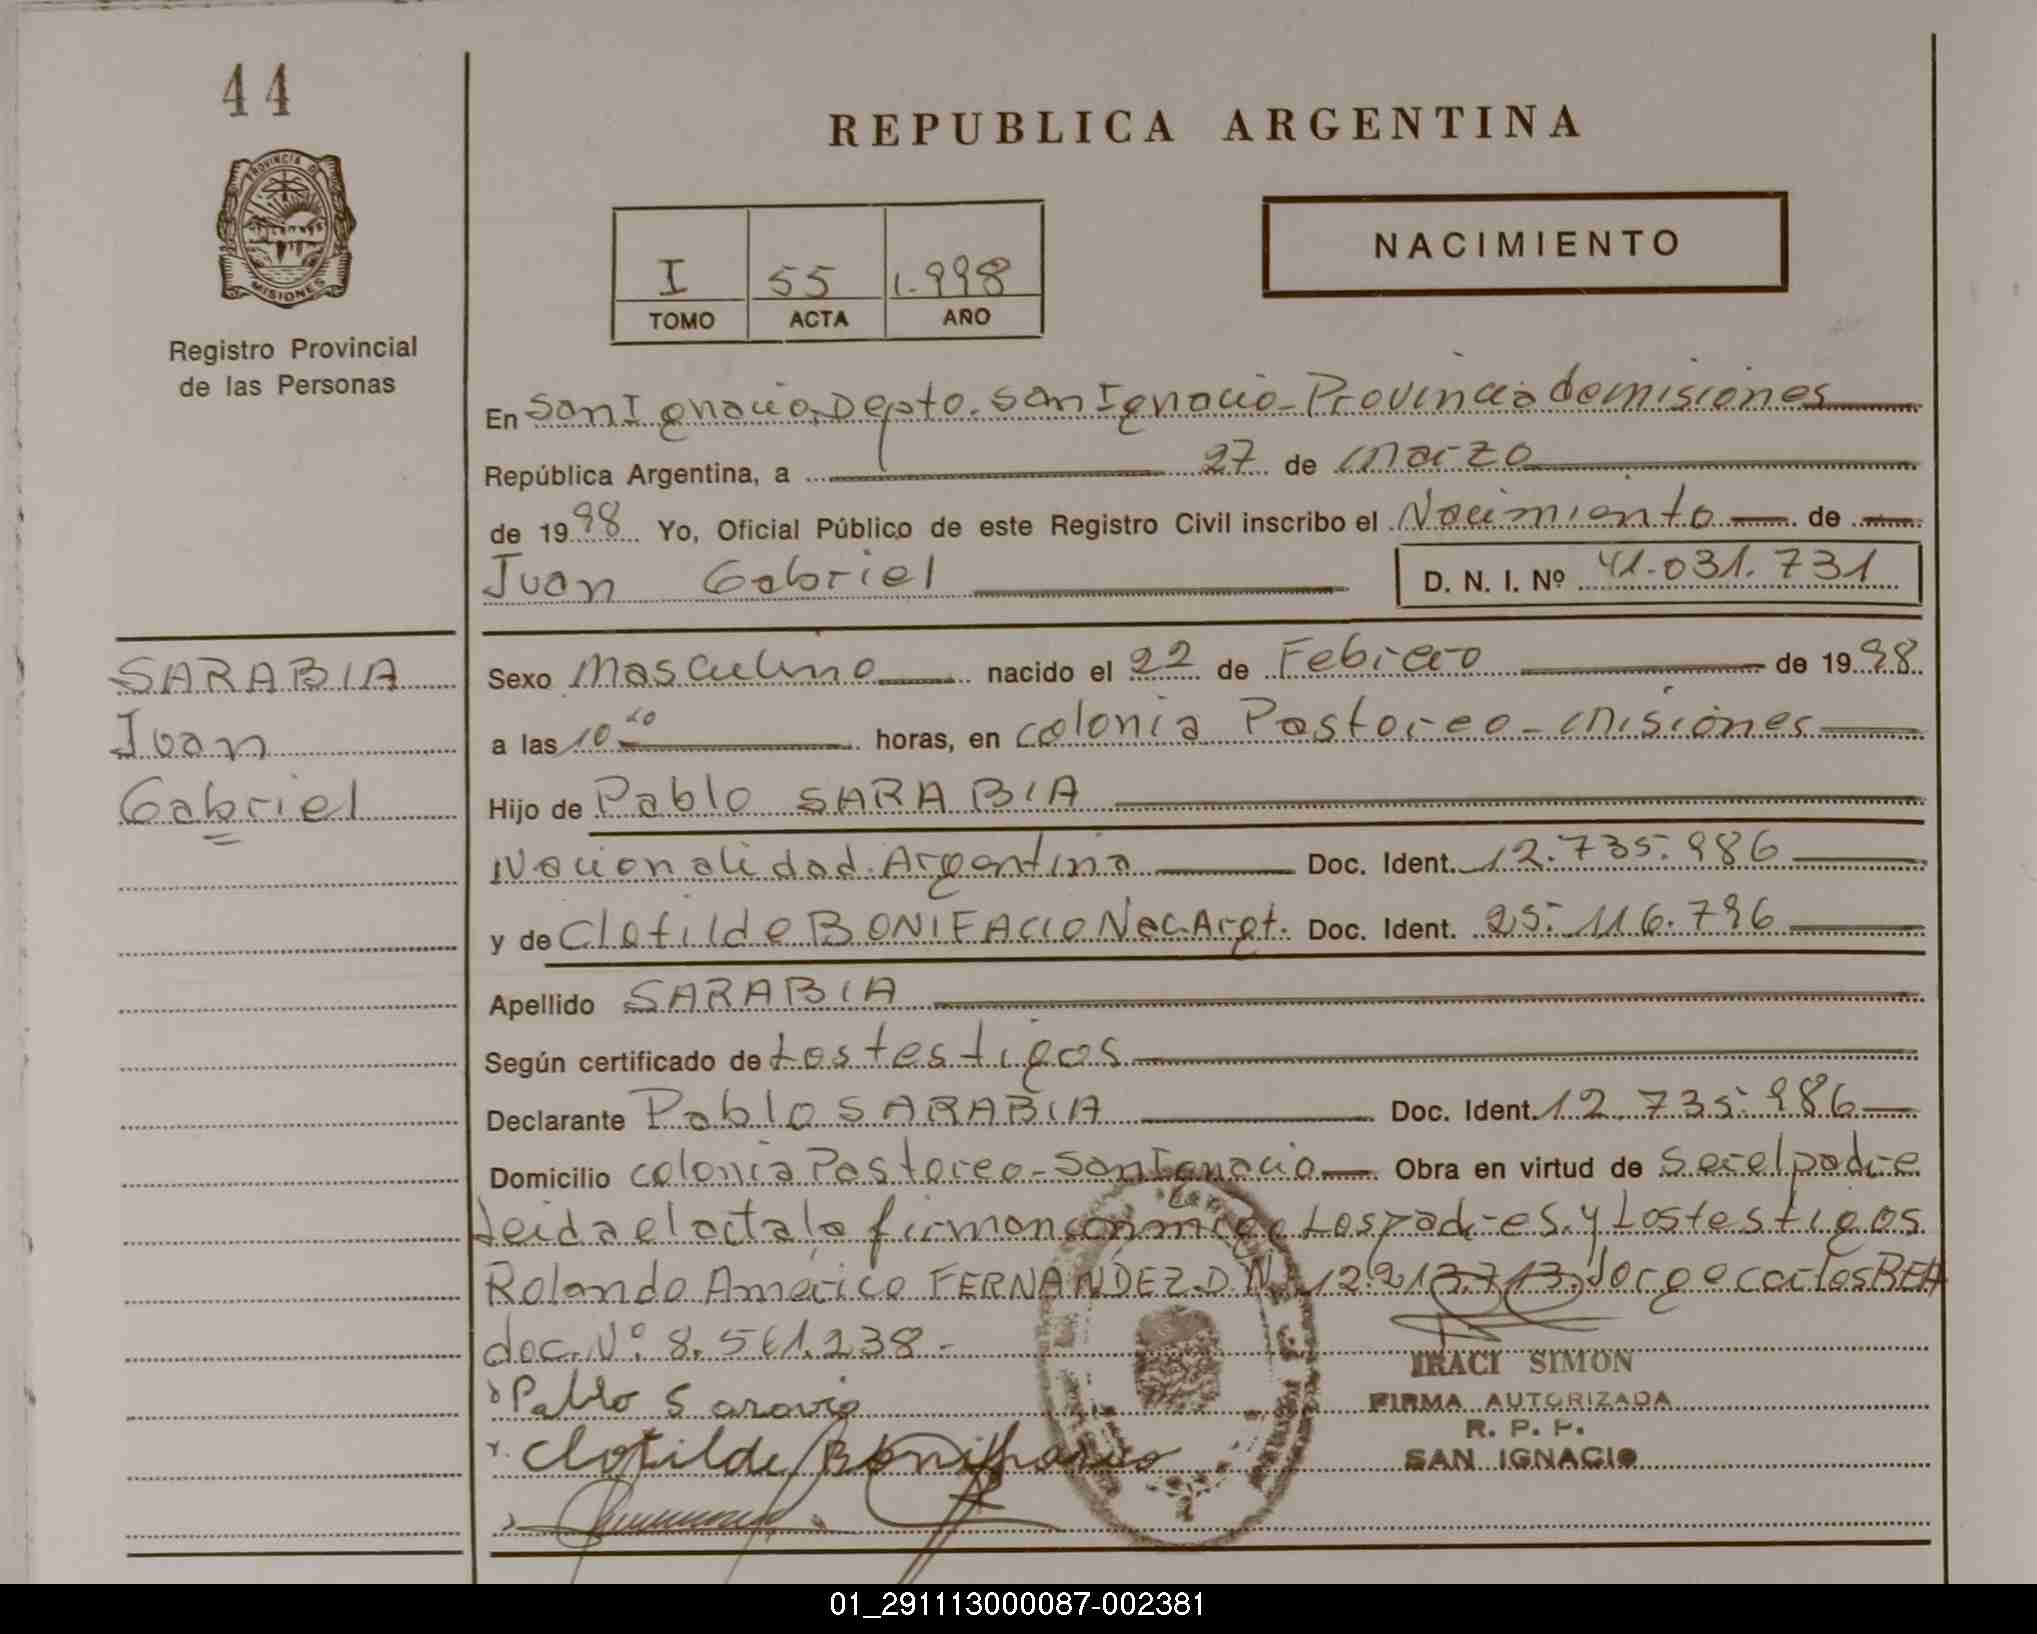 44
REPUBLICA ARGENTINA
PROVINCIA DE
MISIONES
Registro Provincial
de las Personas
I 55 1.998
TOMO ACTA AÑO
NACIMIENTO
En San Ignacio, Depto. San Ignacio - Provincia de misiones
República Argentina, a 27 de Marzo
de 1998 Yo, Oficial Público de este Registro Civil inscribo el Nacimiento de
Juan Gabriel D. N. I. Nº 41.031.731
SARABIA
Juan
Gabriel
Sexo Masculino nacido el 22 de Febrero de 1998
a las 10 horas, en colonia Pastoreo - Misiones
Hijo de Pablo SARABIA
Nacionalidad Argentina Doc. Ident. 12.735.986
y de Clotilde BONIFACIO Nac. Argt. Doc. Ident. 25.116.796
Apellido SARABIA
Según certificado de Los testigos
Declarante Pablo SARABIA Doc. Ident. 12.735.986
Domicilio colonia Pastoreo - San Ignacio Obra en virtud de ser el padre
Leida el acta la firman conmigo Los padres y Los testigos
Rolando Américo FERNÁNDEZ D.N.I 12.213.713. Jorge carlos
doc. Nº 8.561.238 -
IRACI SIMON
FIRMA AUTORIZADA
R. P. P.
SAN IGNACIO
Pablo Saravia
Clotilde
01_291113000087-002381